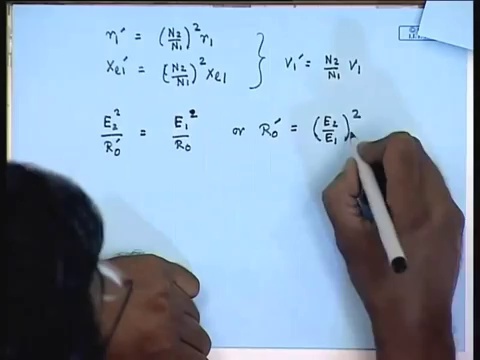 r₁′ = (N₂/N₁)² r₁
Xₑ₁′ = (N₂/N₁)² Xₑ₁ } V₁′ = N₂/N₁ V₁
E₂²/R₀′ = E₁²/R₀ or R₀′ = (E₂/E₁)²